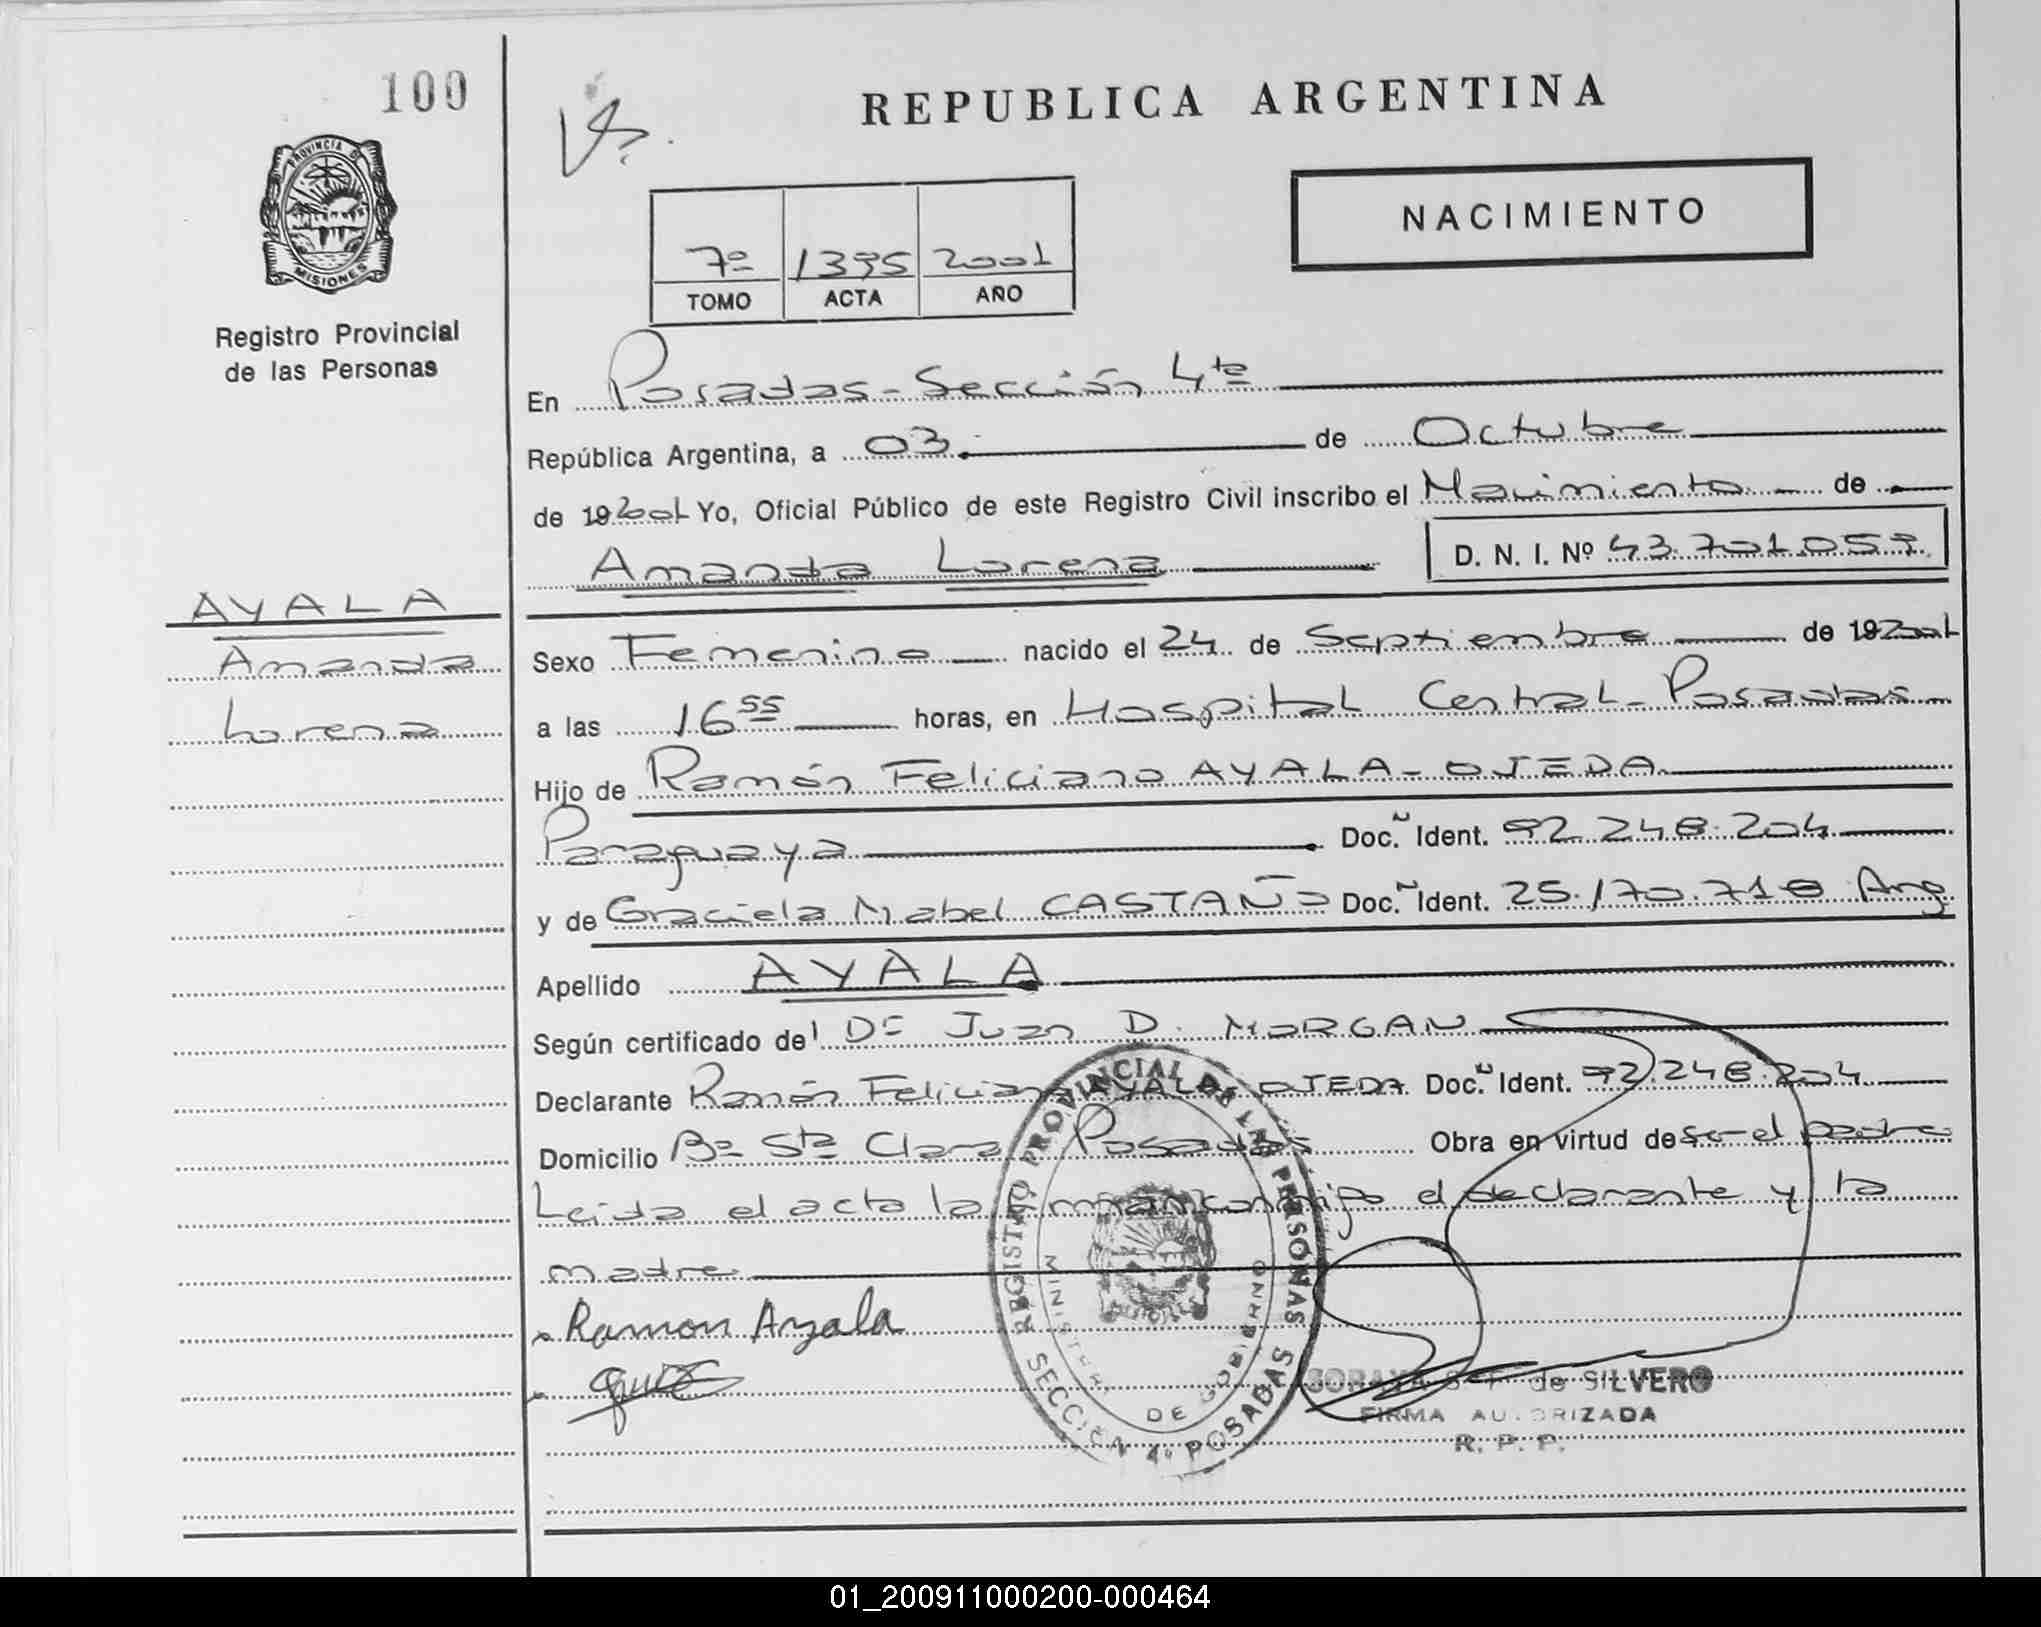 100
REPUBLICA ARGENTINA
PROVINCIA DE
MISIONES
NACIMIENTO
7º 1395 2001
TOMO ACTA AÑO
Registro Provincial
de las Personas
En Posadas - Sección 4ta
República Argentina, a 03 de Octubre
de 19 2001 Yo, Oficial Público de este Registro Civil inscribo el Nacimiento de
Amanda Lorena D. N. I. Nº 43.701.059
AYALA
Amanda
Lorena
Sexo Femenino nacido el 24 de Septiembre de 19 2001
a las 16 55 horas, en Hospital Central - Posadas
Hijo de Ramón Feliciano AYALA - OJEDA
Paraguaya Doc. Ident. 92.248.204
y de Graciela Mabel CASTAÑO Doc. Ident. 25.170.718 Arg
Apellido AYALA
Según certificado del Dr Juan D. MORGAN
Declarante Ramón Feliciano AYALA OJEDA Doc. Ident. 92.248.204
Domicilio Bº Sta Clara Posadas Obra en virtud de ser el padre
Leida el acta la firman conmigo el declarante y la
madre
Ramon Ayala
REGISTRO PROVINCIAL DE LAS PERSONAS
MINISTERIO DE GOBIERNO
SECCION 4º POSADAS
SORAYA de SILVERO
FIRMA AUTORIZADA
R. P. P.
01_200911000200-000464